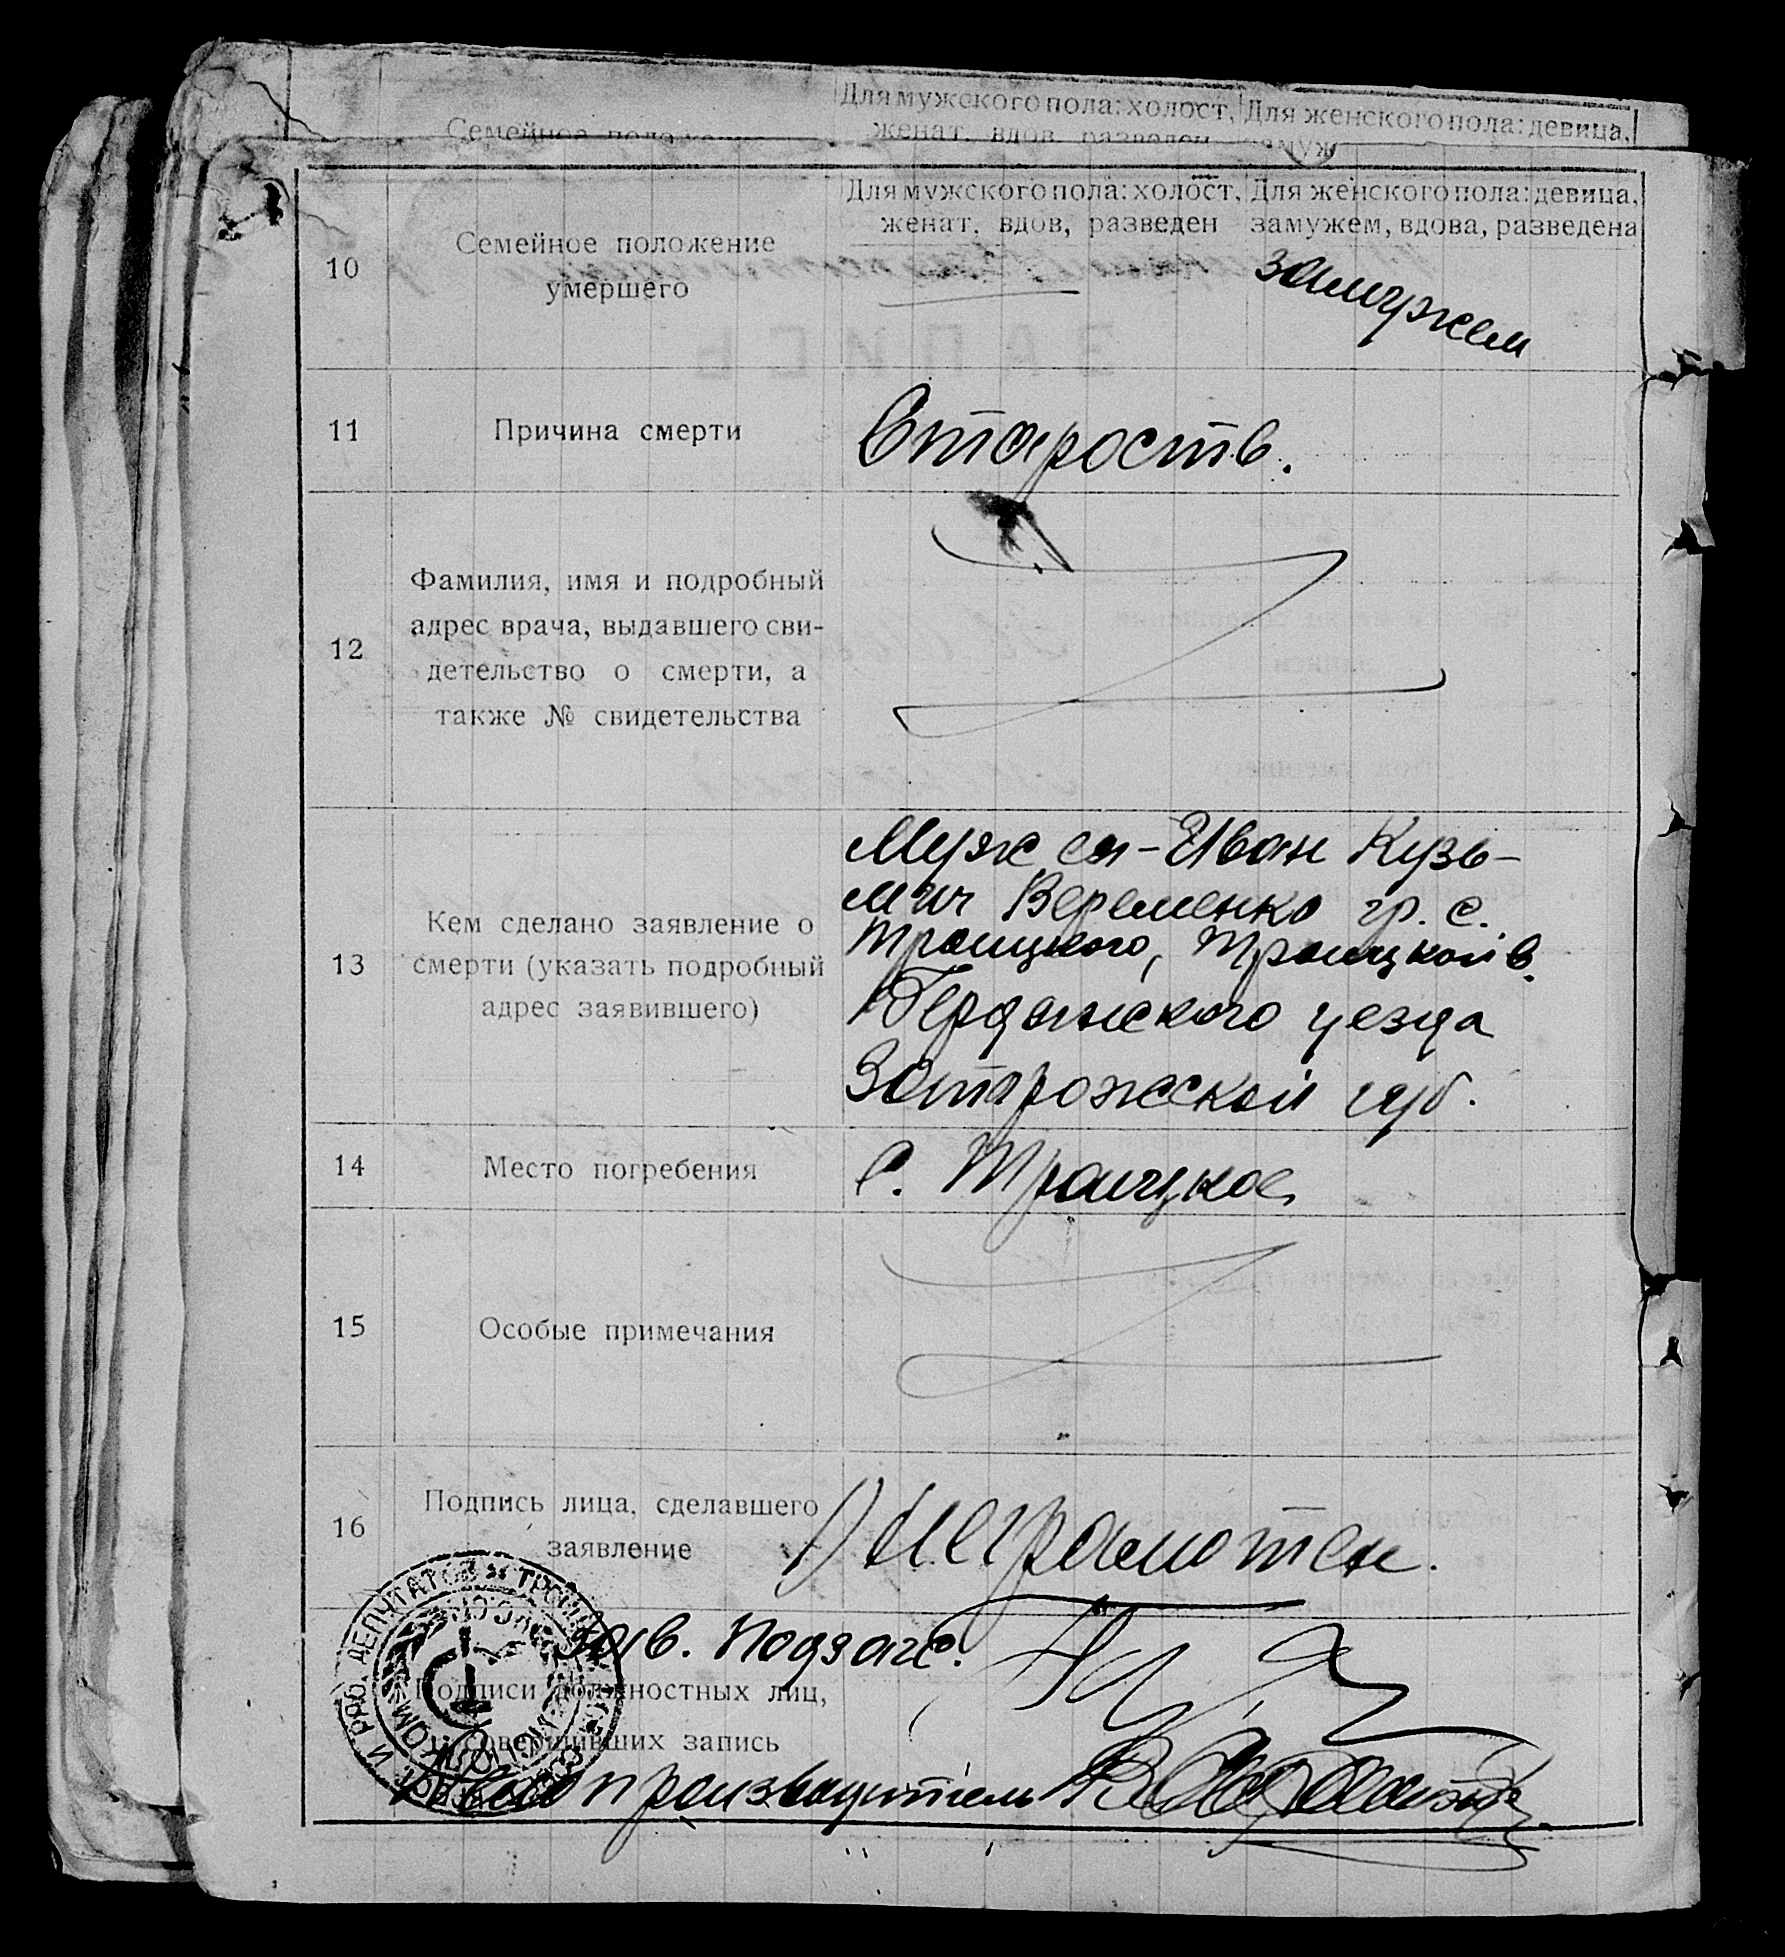 Для мужского пола: холост, Для женского пола: девица,
женат, вдов, разведен
Для мужского пола: холост, Для женского пола: девица,
женат, вдов, разведен замужем, вдова, разведена
10 Семейное положение
умершего
замужем
11 Причина смерти Старость.
12 Фамилия, имя и подробный
адрес врача, выдавшего сви-
детельство о смерти, а
также № свидетельства
13 Кем сделано заявление о
смерти (указать подробный
адрес заявившего)
Муж ея - Иван Кузь-
мич Веременко гр. с.
Троицкого, Троицкой в.
Бердянского уезда
Запорожской губ.
14 Место погребения С. Троицкое
15 Особые примечания
16 Подпись лица, сделавшего
заявление
Неграмотен.
Зав. Подзагс.
Подписи должностных лиц,
совершивших запись
Делопроизводитель